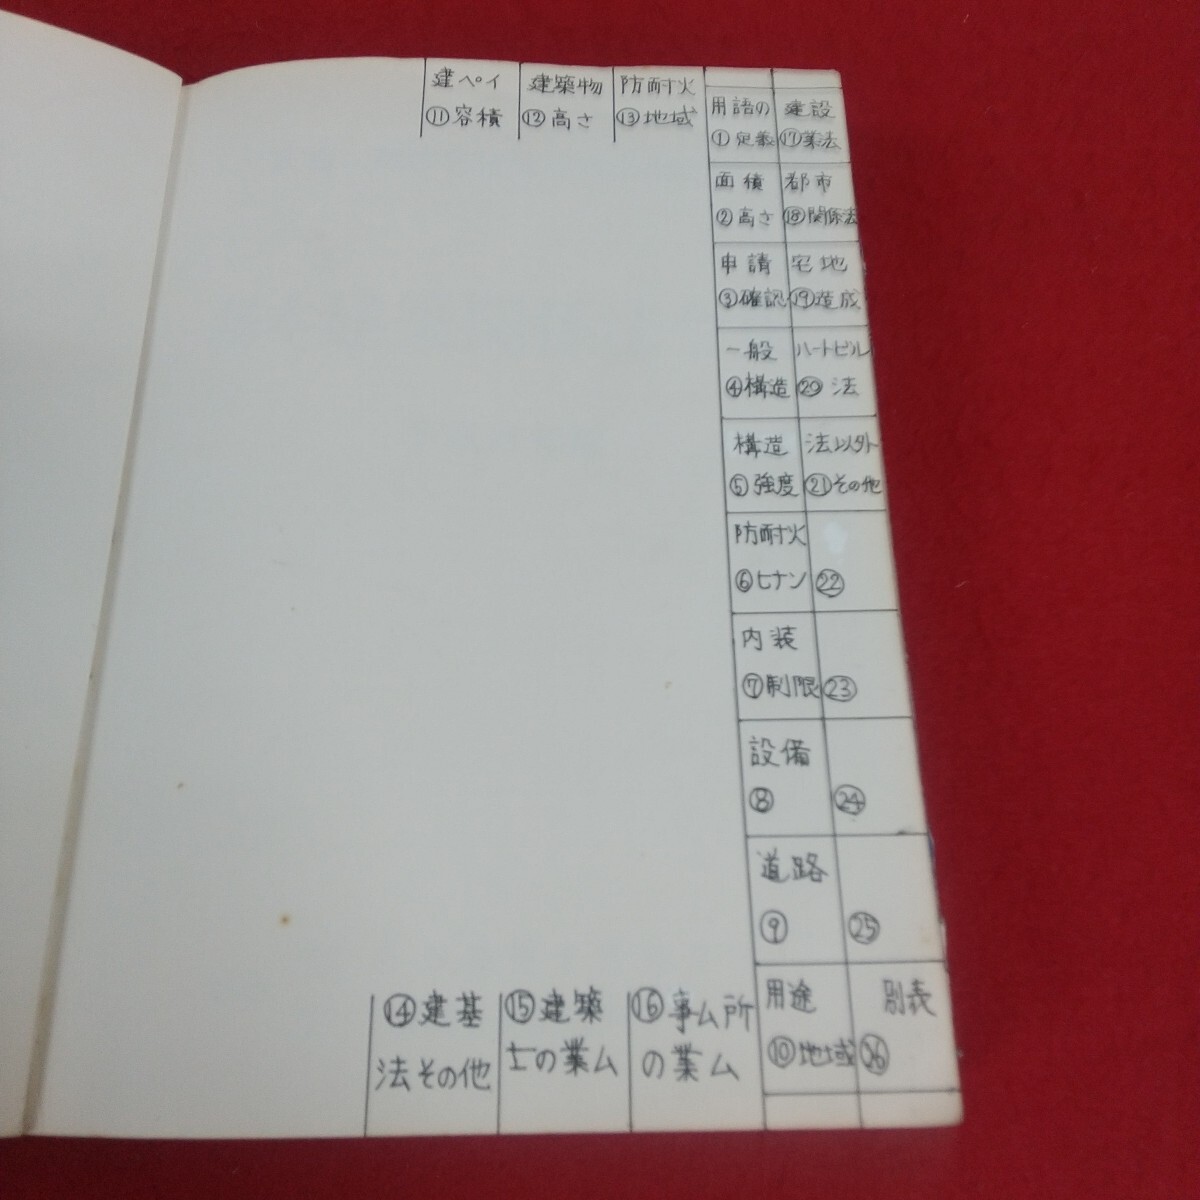 建ペイ
⑪容積
建築物
⑫高さ
防耐火
⑬地域
用語の
①定義
建設
⑰業法
面積
②高さ
都市
⑱関係法
申請
③確認
宅地
⑲造成
一般
④構造
ハートビル
⑳法
構造
⑤強度
法以外
㉑その他
防耐火
⑥ヒナン
㉒
内装
⑦制限
㉓
設備
⑧
㉔
道路
⑨
㉕
用途
⑩地域
別表
㉖
⑭建基
法その他
⑮建築
士の業ム
⑯事ム所
の業ム